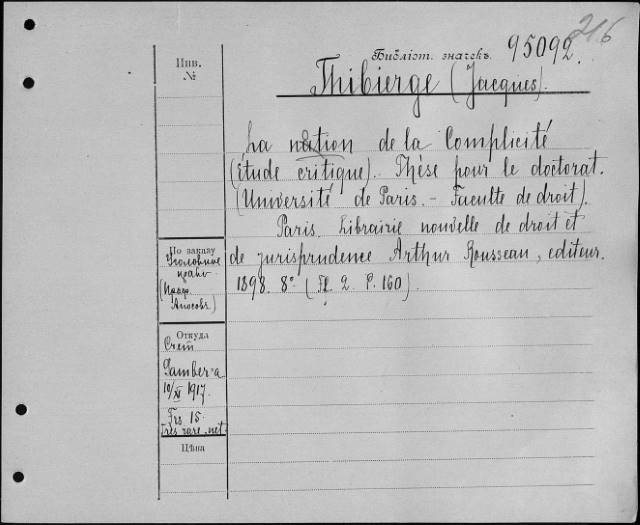 216
Библіот. значекъ. 95092.
Инв.
№
Thibierge (Jacques).
La notion de la Complicité
(étude critique). Thèse pour le doctorat.
(Université de Paris. - Faculté de droit).
Paris. Librairie nouvelle de droit et
de jurisprudence Arthur Rousseau, editeur.
1898. 8° ( 2. P. 160).
По заказу
Уголовное
право
(Проф.
Откуда
Счет
Gamber'a
10/XI 1917.
Frs 15
très rare net.
Цѣна